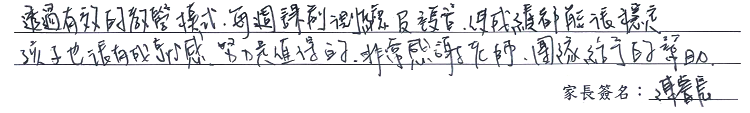 透過有效的教學模式.每週課前測驗及複習.使成績都能很穩定
孩子也很有成就感.努力是值得的.非常感謝老師.團隊給予的幫助.
家長簽名：